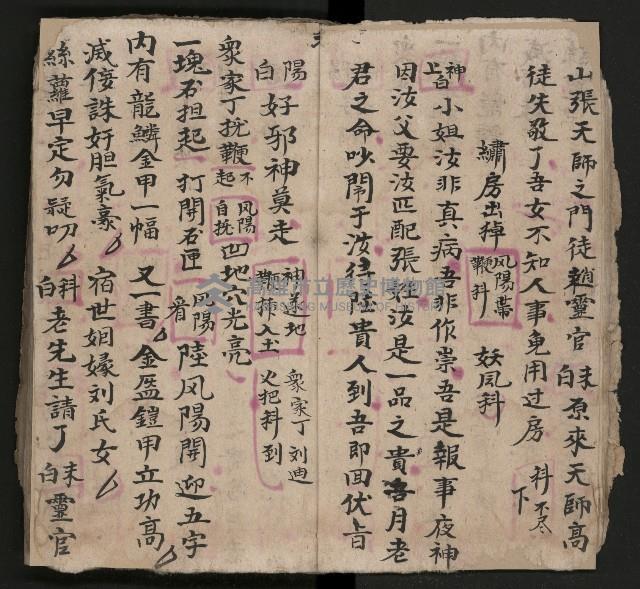 山張天師之門徒趙靈官 末白 原來天師高
徒失敬了吾女不知人事免用过房 科不尽 下
繡房出棹 风陽帯鞭科 妖风科
神上白 小姐汝非真病吾非作祟吾是報事夜神
因汝父要汝匹配張 汝是一品之貴 月老
君之命吵鬧于汝待陸貴人到吾即回伏旨
陽白 好邪神莫走 神 地 入土 衆家丁刘迪 火把科到
衆家丁搅鞭不起 风陽自搅 凹地穴光亮
一塊石担起 打開石匣看 风陽 陸风陽開迎五字
内有龍鱗金甲一幅 又一書 金盔鎧甲立功高
滅倿誅奸胆氣豪 宿世姻緣刘氏女
絲蘿早定勿疑叨 科白 老先生請了 末白 靈官
高雄市立歷史博物館
KAOHSIUNG MUSEUM OF HISTORY